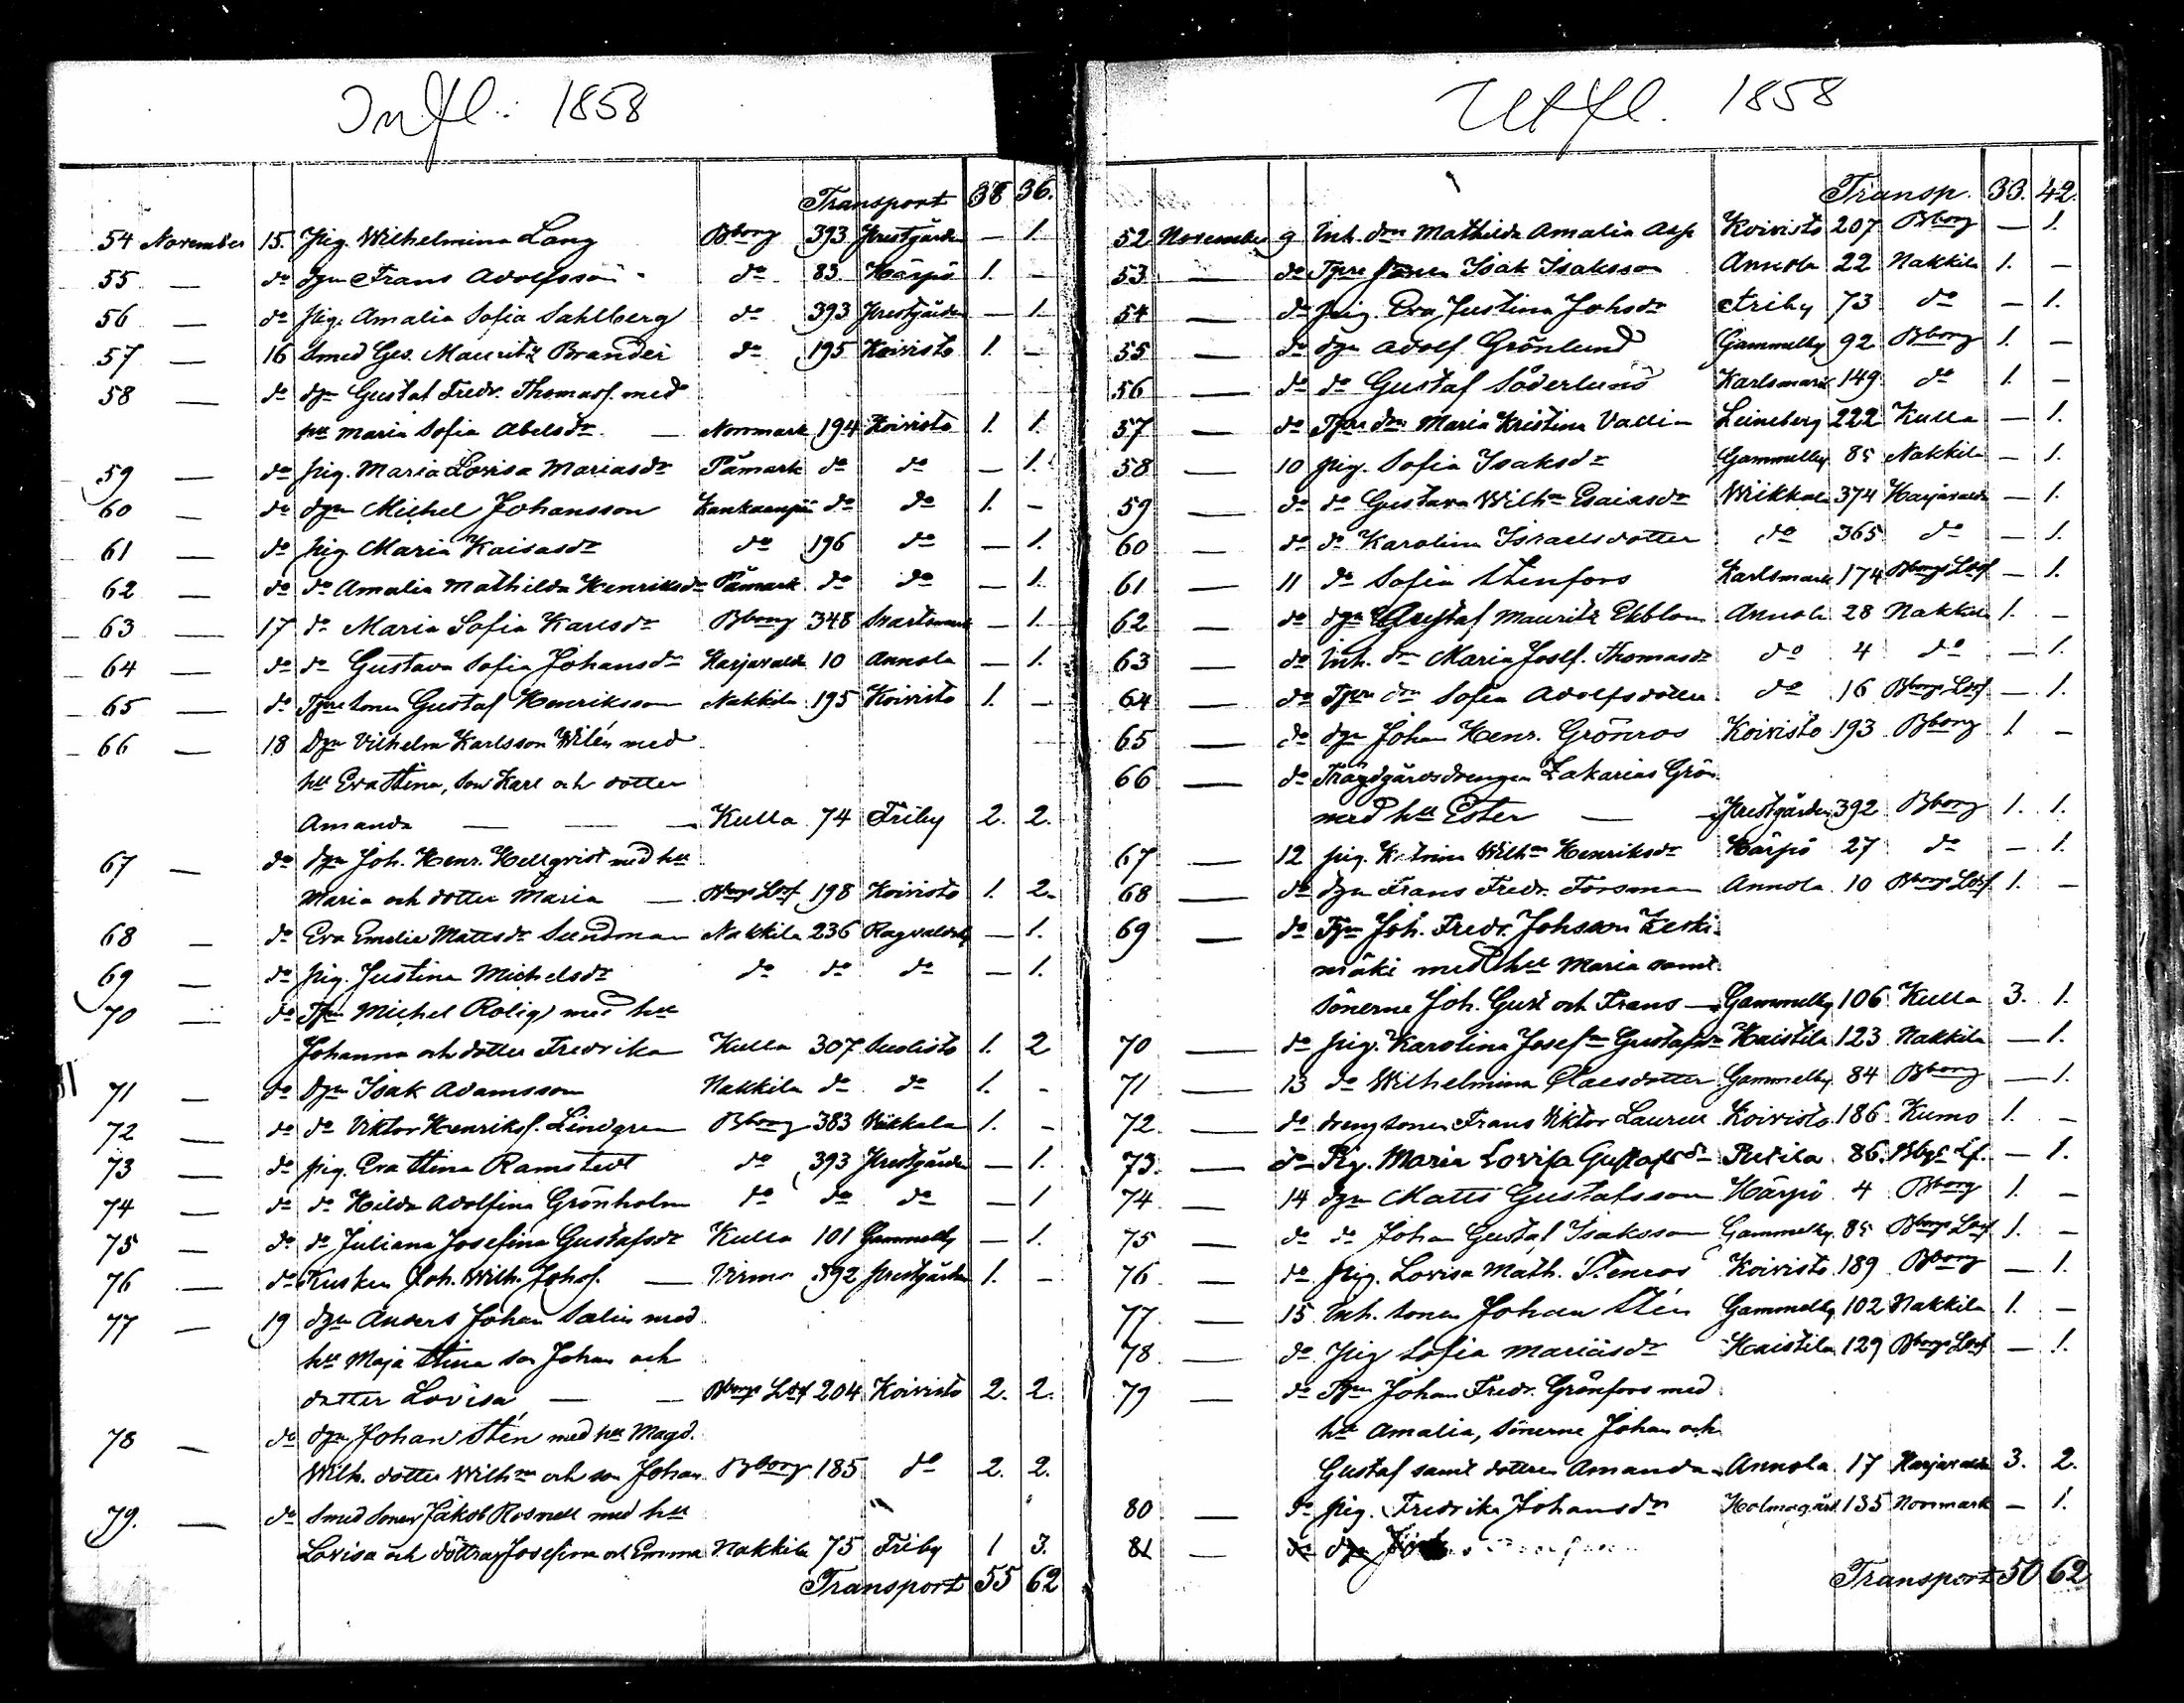 Infl.: 1858
Transport 38 36.
54 November 15. Pig. Wilhelmina Lang Bborg 393 Prestgården — 1.
55 — do Dgn Frans Adolfsson do 83 Härpö 1. —
56 — do Pig. Amalia Sofia Sahlberg do 393 Prestgården — 1.
57 — 16 Smed Ges. Mauritz Brander do 195 Koivisto 1. —
58 — do Dgn Gustaf Fredr. Thomasf. med
hu Maria Sofia Abelsdr — Norrmark 194 Koivisto 1. 1.
59 — do Pig. Maria Lovisa Mariasdr Påmark do do — 1.
60 — do Dgn Michel Johansson Kankaanpää do do 1. —
61 — do Pig. Maria Kaisasdr do 196 do — 1.
62 — do do Amalia Mathilda Henriksdr Påmark do do — 1.
63 — 17 do Maria Sofia Karlsdr Bborg 348 Svartsmark — 1.
64 — do do Gustava Sofia Johansdr Harjavalda 10 Annola — 1.
65 — do Tpre sonen Gustaf Henriksson Nakkila 195 Koivisto 1. —
66 — 18 Dgn Vilhelm Karlsson Wilén med
hu Eva Stina, Son Karl och dotter
Amanda — — — Kulla 74 Friby 2. 2.
67 — do Dgn Joh. Henr. Hellqvist med hu
Maria och dotter Maria — Bborgs Ldsf 198 Koivisto 1. 2.
68 — do Eva Emelie Mattsdr Sundman Nakkila 236 Ragvaldsby — 1.
69 — do Pig. Justina Michelsdr do do do — 1.
70 — do Tpn Michel Rolig med hu
Johanna och dotter Fredrika Kulla 307 Suolisto 1. 2
71 — do Dgn Isak Adamsson Nakkila do do 1. -
72 — do do Viktor Henriksf. Lindgren Bborg 383 Vikkala 1. -
73 — do Pig. Eva Stina Ramstedt do 393 Prestgården — 1.
74 — do do Hilda Adolfina Grönholm do do do — 1
75 — do do Juliana Josefina Gustafsdr Kulla 101 Gammelby — 1.
76 — do Kusken Joh. Wilh. Johsf. — Virmo 392 Prestgården 1. -
77 — 19 Dgn Anders Johan Salin med
hu Maja Stina son Johan och
dotter Lovisa — — Bborgs Ldsf 204 Koivisto 2. 2.
78 — do Dgn Johan Stén med hu Magd.
Wilh. dotter Wilhna och son Johan Bborg 185 do 2. 2.
79. — do Smed Sonen Jakob Rosnell med hu
Lovisa och döttrar Josefina och Emma Nakkila 75 Friby 1 3.
Transport 55 62
Utfl. 1858
Transp. 33. 42.
52 November 9 Inh. dra Mathilda Amalia Asp Koivisto 207 Bborg — 1.
53 — do Tpre sonen Isak Isaksson Annola 22 Nakkila 1. —
54 — do Pig. Eva Justina Johsdr Friby 73 do — 1.
55 — do Dgn Adolf Grönlund Gammelby 92 Bborg 1. —
56 — do do Gustaf Söderlund Karlsmark 149 do 1. —
57 — do Tpre dra Maria Kristina Vallin Leineberg 222 Kulla — 1.
58 — 10 Pig. Sofia Isaksdr Gammelby 85 Nakkila — 1.
59 — do do Gustava Wilhna Esaiasdr Wikkala 374 Harjavalda — 1.
60 — do do Karolina Israelsdotter do 365 do — 1.
61 — 11 do Sofia Stenfors Karlsmark 174 Bborgs Ldsf — 1.
62 — do Dgn Gustaf Mauritz Ekblom Annola 28 Nakkila 1. —
63 — do Inh. dr Maria Josef. Thomasdr do 4 do — 1.
64 — do Tpre dra Sofia Adolfsdotter do 16 Bborgs Ldsf — 1.
65 — do Dgn Johan Henr. Grönroos Koivisto 193 Bborg 1 —
66 — do Trägdgårdsdrengen Zakarias Grön
med hu Ester — Prestgården 392 Bborg 1. 1.
67 — 12 Pig. Katrina Wilhna Henriksdr Härpö 27 do — 1.
68 — do Dgn Frans Fredr. Forsman Annola 10 Bborgs Ldsf 1. —
69 — do Tpn Joh. Fredr. Johsson Keski-
mäki med hu Maria samt
sönerne Joh. Gust och Frans — Gammelby 106 Kulla 3. 1.
70 — do Pig. Karolina Josefna Gustafsdr Haistila 123 Nakkila — 1.
71 — 13 do Wilhelmina Claesdotter Gammelby 84 Bborg — 1.
72. — do dreng sonen Frans Viktor Laurell Koivisto 186 Kumo 1. -
73. — do Pig. Maria Lovisa Gustafsdr Putila 86. Bbgs Lf. — 1.
74 — 14 Dgn Matts Gustafsson Härpö 4 Bborg 1. —
75 — do do Johan Gustaf Isaksson Gammelby 85 Bborgs Ldsf 1. -
76 — do Pig. Lovisa Math. Stenroos Koivisto 189 Bborg — 1.
77. — 15 Inh. sonen Johan Stén Gammelby 102 Nakkila 1. —
78 — do Pig Sofia Mariasdr Haistila 129 Bborgs Ldsf — 1.
79 — do Tpn Johan Fredr. Grönfors med
hu Amalia, sönerne Johan och
Gustaf samt dottren Amanda Annola 17 Harjavalda 3. 2.
80 — do Pig. Fredrika Johansdr Holmagård 135 Norrmark — 1.
81 — do Dgn
Transport 50 62